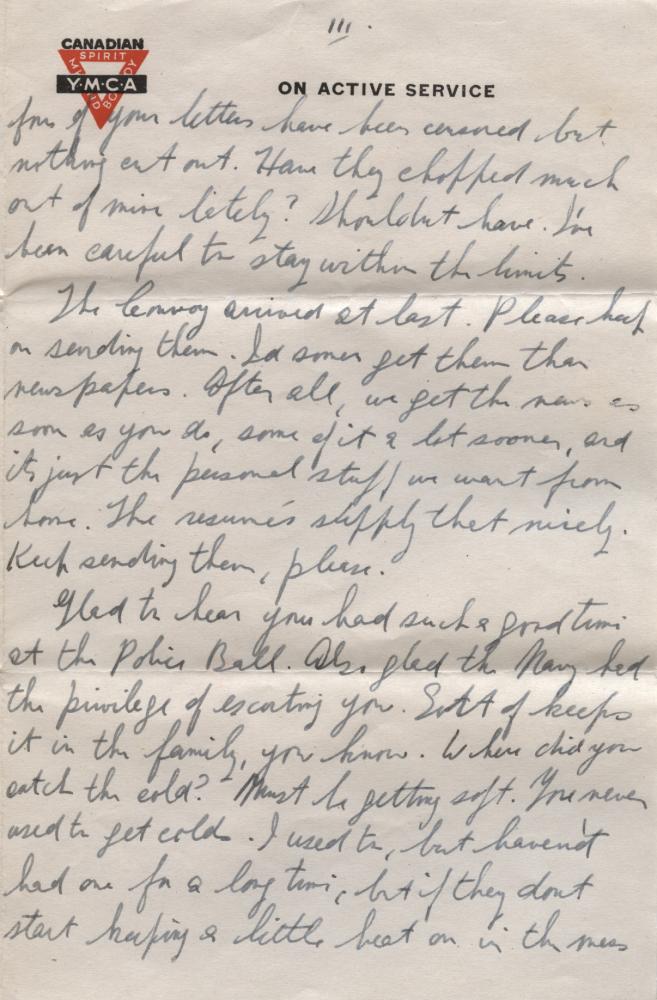 III.
CANADIAN
SPIRIT
Y·M·C·A
MIND BODY
ON ACTIVE SERVICE
four of your letters have been censored but
nothing cut out. Have they chopped much
out of mine lately? Shouldnt have. I've
been careful to stay within the limits.
The Convoy arrived at last. Please keep
on sending them. Id sooner get them than
newspapers. After all, we get the news as
soon as you do, some of it a lot sooner, and
its just the personal stuff we want from
home. The resumés supply that nicely.
Keep sending them, please.
Glad to hear you had such a good time
at the Police Ball. Also glad the Navy had
the privilege of escorting you. Sort of keeps
it in the family, you know. Where did you
catch the cold? Must be getting soft. You never
used to get colds. I used to, but haven't
had one for a long time, but if they dont
start keeping a little heat on in the mess